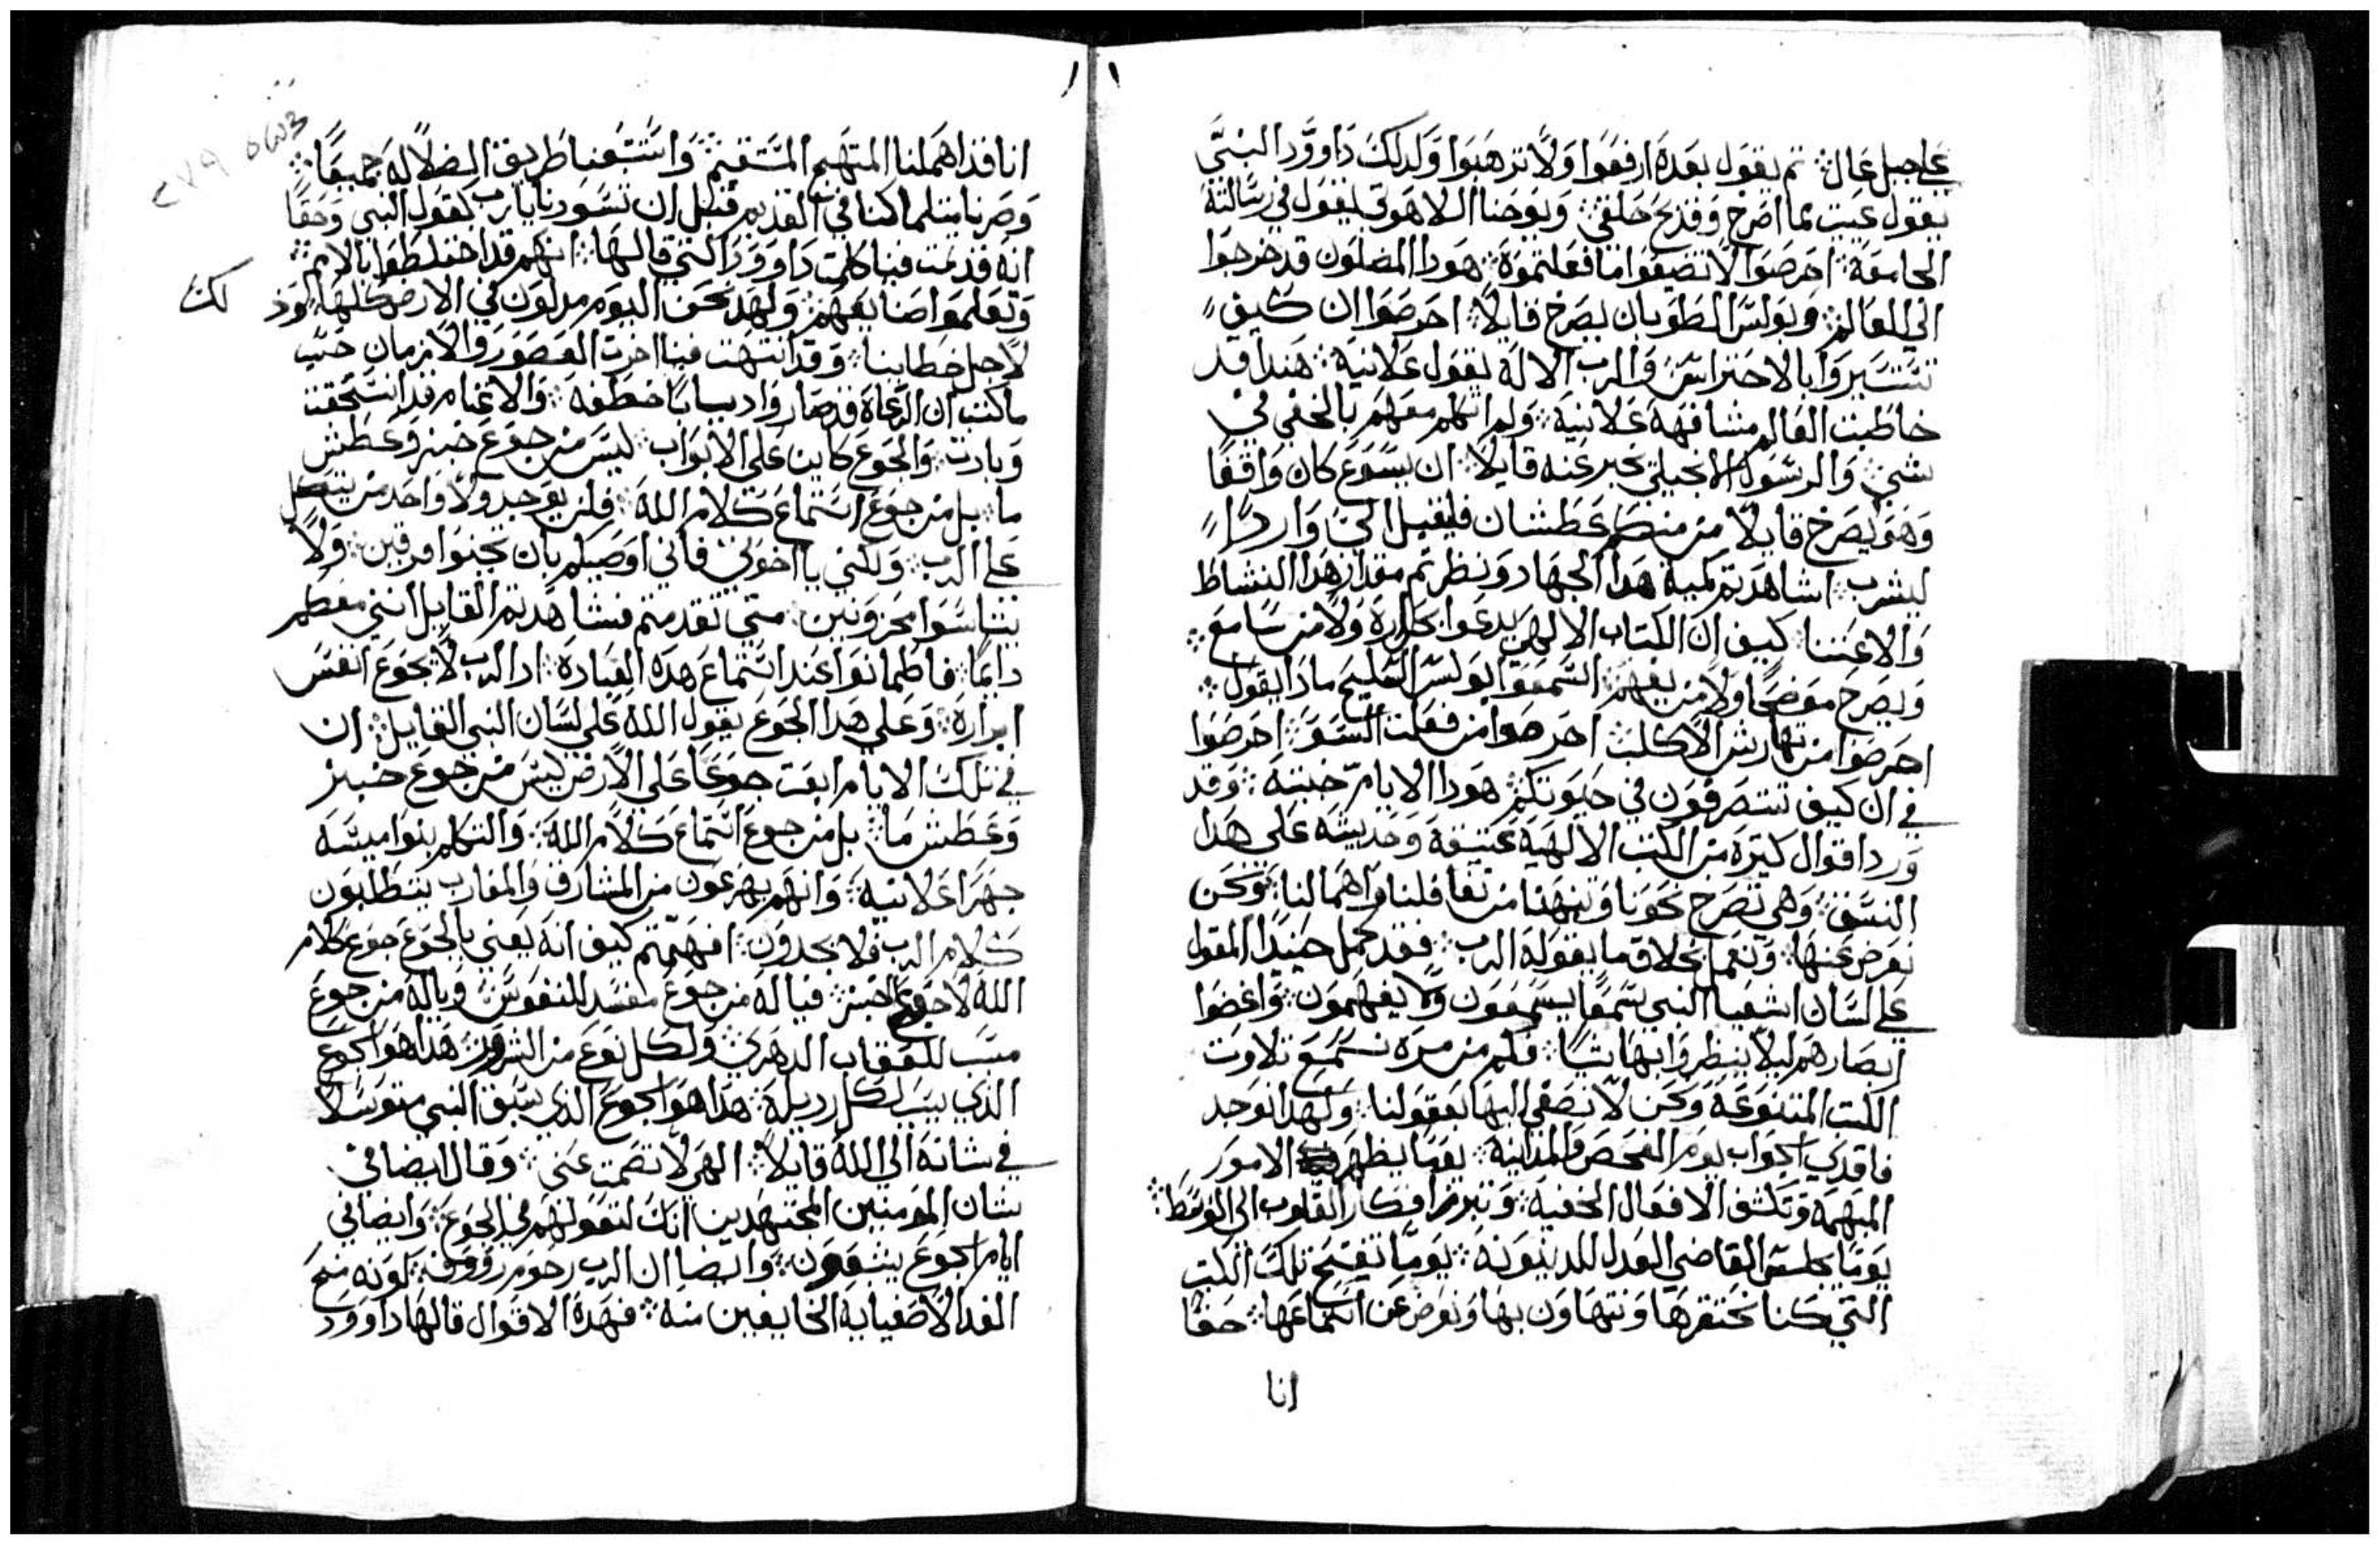 على جبل عال ثم يقول بعده ارفعوا ولا ترهبوا ولدلك داوود النبي
يقول عييت بما اصرخ وقد بح حلقي ويوحنا اللاهوتي ليقول في رسالته
الجامعة احرصوا لا تضيعوا ما فعلتموه هودا المضلون قد خرجوا
الي العالم وبولس الطوبان يصرخ قايلا احرصوا ان كيف
تتسيروا بالاحتراس والرب الاله يقول علانية هندا قد
خاطبت العالم مشافهة علانية ولم اتكلم معهم بالخفي في
شي والرسول الانجيلي يخبر عنه قايلا ان يسوع كان واقفا
وهو يصرخ قايلا من منكم عطشان فليقبل الي واردا
ليشرب اشاهدتم كمية هدا الجهاد ونظرتم مقدار هدا النشاط
والاعتنا كيف ان الكتاب الالهي يدعوا بحرارة ولا من سامع
ويصرخ موضحا ولا من يفهم اسمعوا بولس السليح مادا يقول
احرصوا من تهارش الاكلب احرصوا من فعلت السوء احرصوا
في ان كيف تتصرفون في حيوتكم هودا الايام خبيثة وقد
ورد اقوال كثيرة من الكتب الالهية عتيقة وحديثه على هدا
النسق وهي تصرخ نحونا وتنبهنا من تغافلنا واهمالنا ونحن
نعرض عنها ونعمل بخلاف ما يقوله الرب فقد كمل حينيدا المقول
على لسان اشعيا النبي سمعا يسمعون ولا يفهمون واغضوا
ابصارهم ليلا ينظروا بها شيا فكم من مرة نسمع تلاوت
الكتب المتنوعة ونحن لا نصغي اليها بعقولنا ولهدا نوجد
فاقدي الجواب يوم الفحص والمداينة يوما يظهر الامور
المبهمة وتكشف الافعال الخفية وتبرز افكار القلوب الى الوسط
يوما يجلس القاضي العدل للدينونة يوما تفتح تلك الكتب
التي كنا نحتقرها ونتهاون بها ونعرض عن استماعها حقا
انا
اننا قد اهملنا المنهج المستقيم واستتبعنا طريق الضلالة جميعا
وصرنا مثلما كنا في القديم قبل ان تسودنا يارب كقول النبي وحقا
انه قد تمت فينا كلمت داوود التي قالها انهم قد اختلطوا بالامم
وتعلموا صنايعهم ولهد نحن اليوم مدلون في الارض كلها
لك
لاجل خطايانا وقد انتهت فينا اخرت العصور والازمان حسب
ما كتب ان الرعاة قد صاروا ديابا خطفه والاغنام قد انسحقت
وبادت والجوع كاين على الابواب ليس من جوع خبز وعطش
ما بل من جوع استماع كلام الله فلن يوجد ولا واحد من يتكل
على الرب ولكني يا اخوتي فاني اوصيكم بان تحنوا مرقين ولا
تتناسوا محزونين متى تقدمتم فشاهدتم القايل انني معكم
دايما فاطمانوا عند استماع هده العبارة اد الرب لا يجوع انفس
ابراره وعلى هدا الجوع يقول الله على لسان النبي القايل ان
في تلك الايام ابعت جوعا على الارض ليس من جوع خبز
وعطش ما بل من جوع استماع كلام الله والتكلم بنواميسه
جهرا علانية وانهم يهرعون من المشارق والمغارب يتطلبون
كلام الرب فلا يجدون افهمتم كيف انه يعني بالجوع جوع كلام
الله لا جوع الخبز فياله من جوع مفسد للنفوس وياله من جوع
مسبب للعقاب الدهري ولكل نوع من الشرور هدا هو الجوع
الدي يسبب لكل رديلة هدا هو الجوع الدي سبق النبي متوسلا
في شانه الي الله قايلا الهي لا تصمت عني وقال ايضا في
شان المومنين المجتهدين انك لتعولهم في الجوع وايضا في
ايام الجوع يشبعون وايضا ان الرب رحوم رووف لونه منح
الغدا لاصفيايه الخايفين منه فهده الاقوال قالها داوود